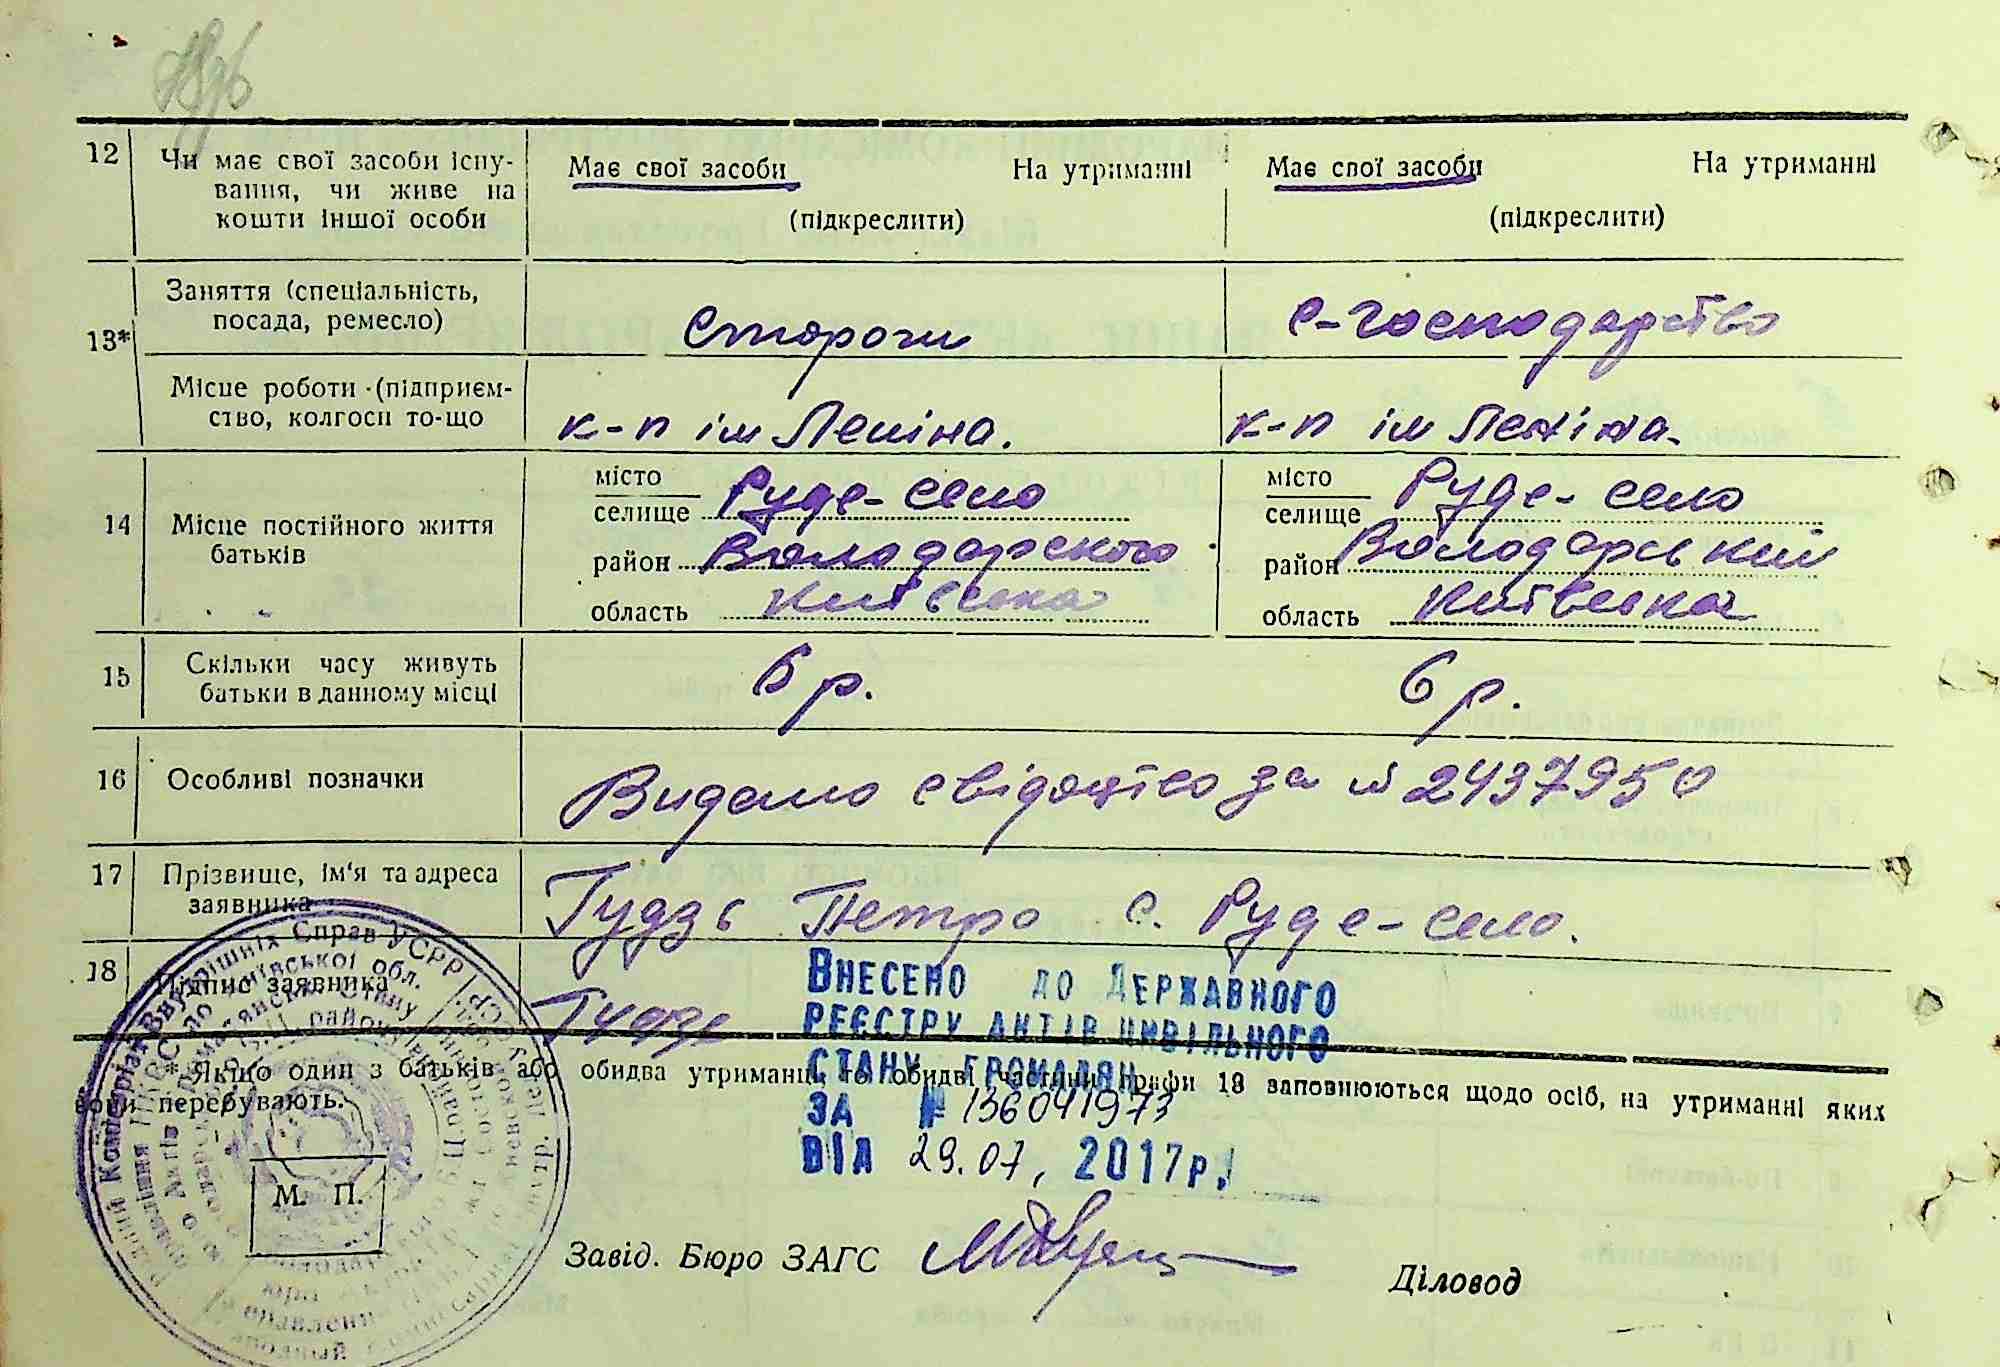 12 Чи має свої засоби існу-
вання, чи живе на
кошти іншої особи
Має свої засоби На утриманні
(підкреслити)
Має свої засоби На утриманні
(підкреслити)
13* Заняття (спеціальність,
посада, ремесло)
Сторож
с-господарство
Місце роботи (підприєм-
ство, колгосп то-що
к-п ім Леніна.
к-п ім Леніна.
14 Місце постійного життя
батьків
місто
селище Руде-село
район Володарського
область Київська
місто
селище Руде-село
район Володарський
область Київська
15 Скільки часу живуть
батьки в данному місці
6 р.
6 р.
16 Особливі позначки
Видано свідоцтво за № 2437950
17 Прізвище, ім'я та адреса
заявника
Гудзь Петро с. Руде-село.
18 Підпис заявника
Гудзь
Внесено до Державного
реєстру актів цивільного
стану громадян
за № 136041973
від 29.07, 2017р.
* Якщо один з батьків або обидва утриманці, то обидві частини графи 13 заповнюються щодо осіб, на утриманні яких
вони перебувають.
М. П.
Завід. Бюро ЗАГС
Діловод